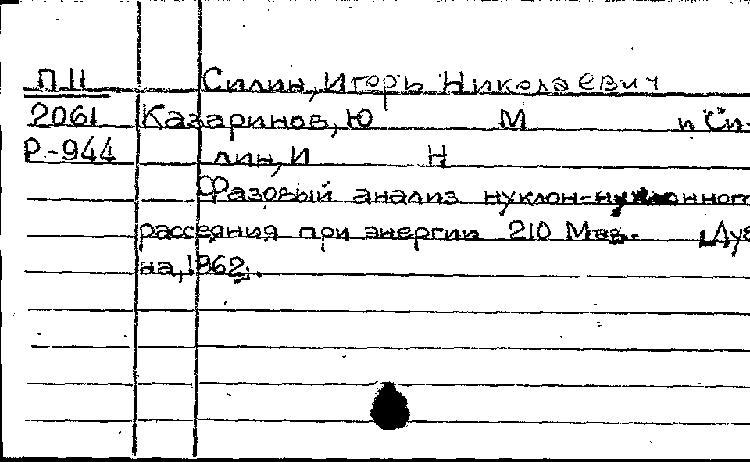 П11 Силин, Игорь Николаевич
2061 Казаринов, Ю М и Си-
Р-944 лин, И Н
Фазовый анализ нуклон-нуклонног
рассеяния при энергии 210 Мэв. Дуб
на, 1962.